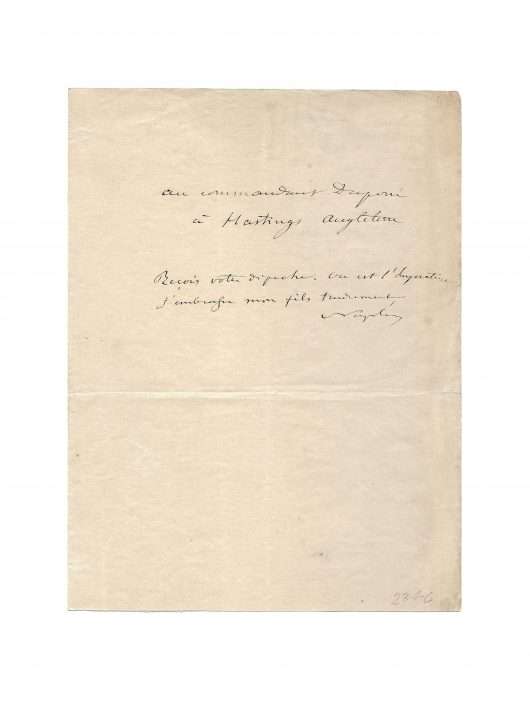 au commandant Duperré
à Hastings Angleterre
Reçois votre dépêche. Où est l'Impératrice
J'embrasse mon fils tendrement
Napoléon